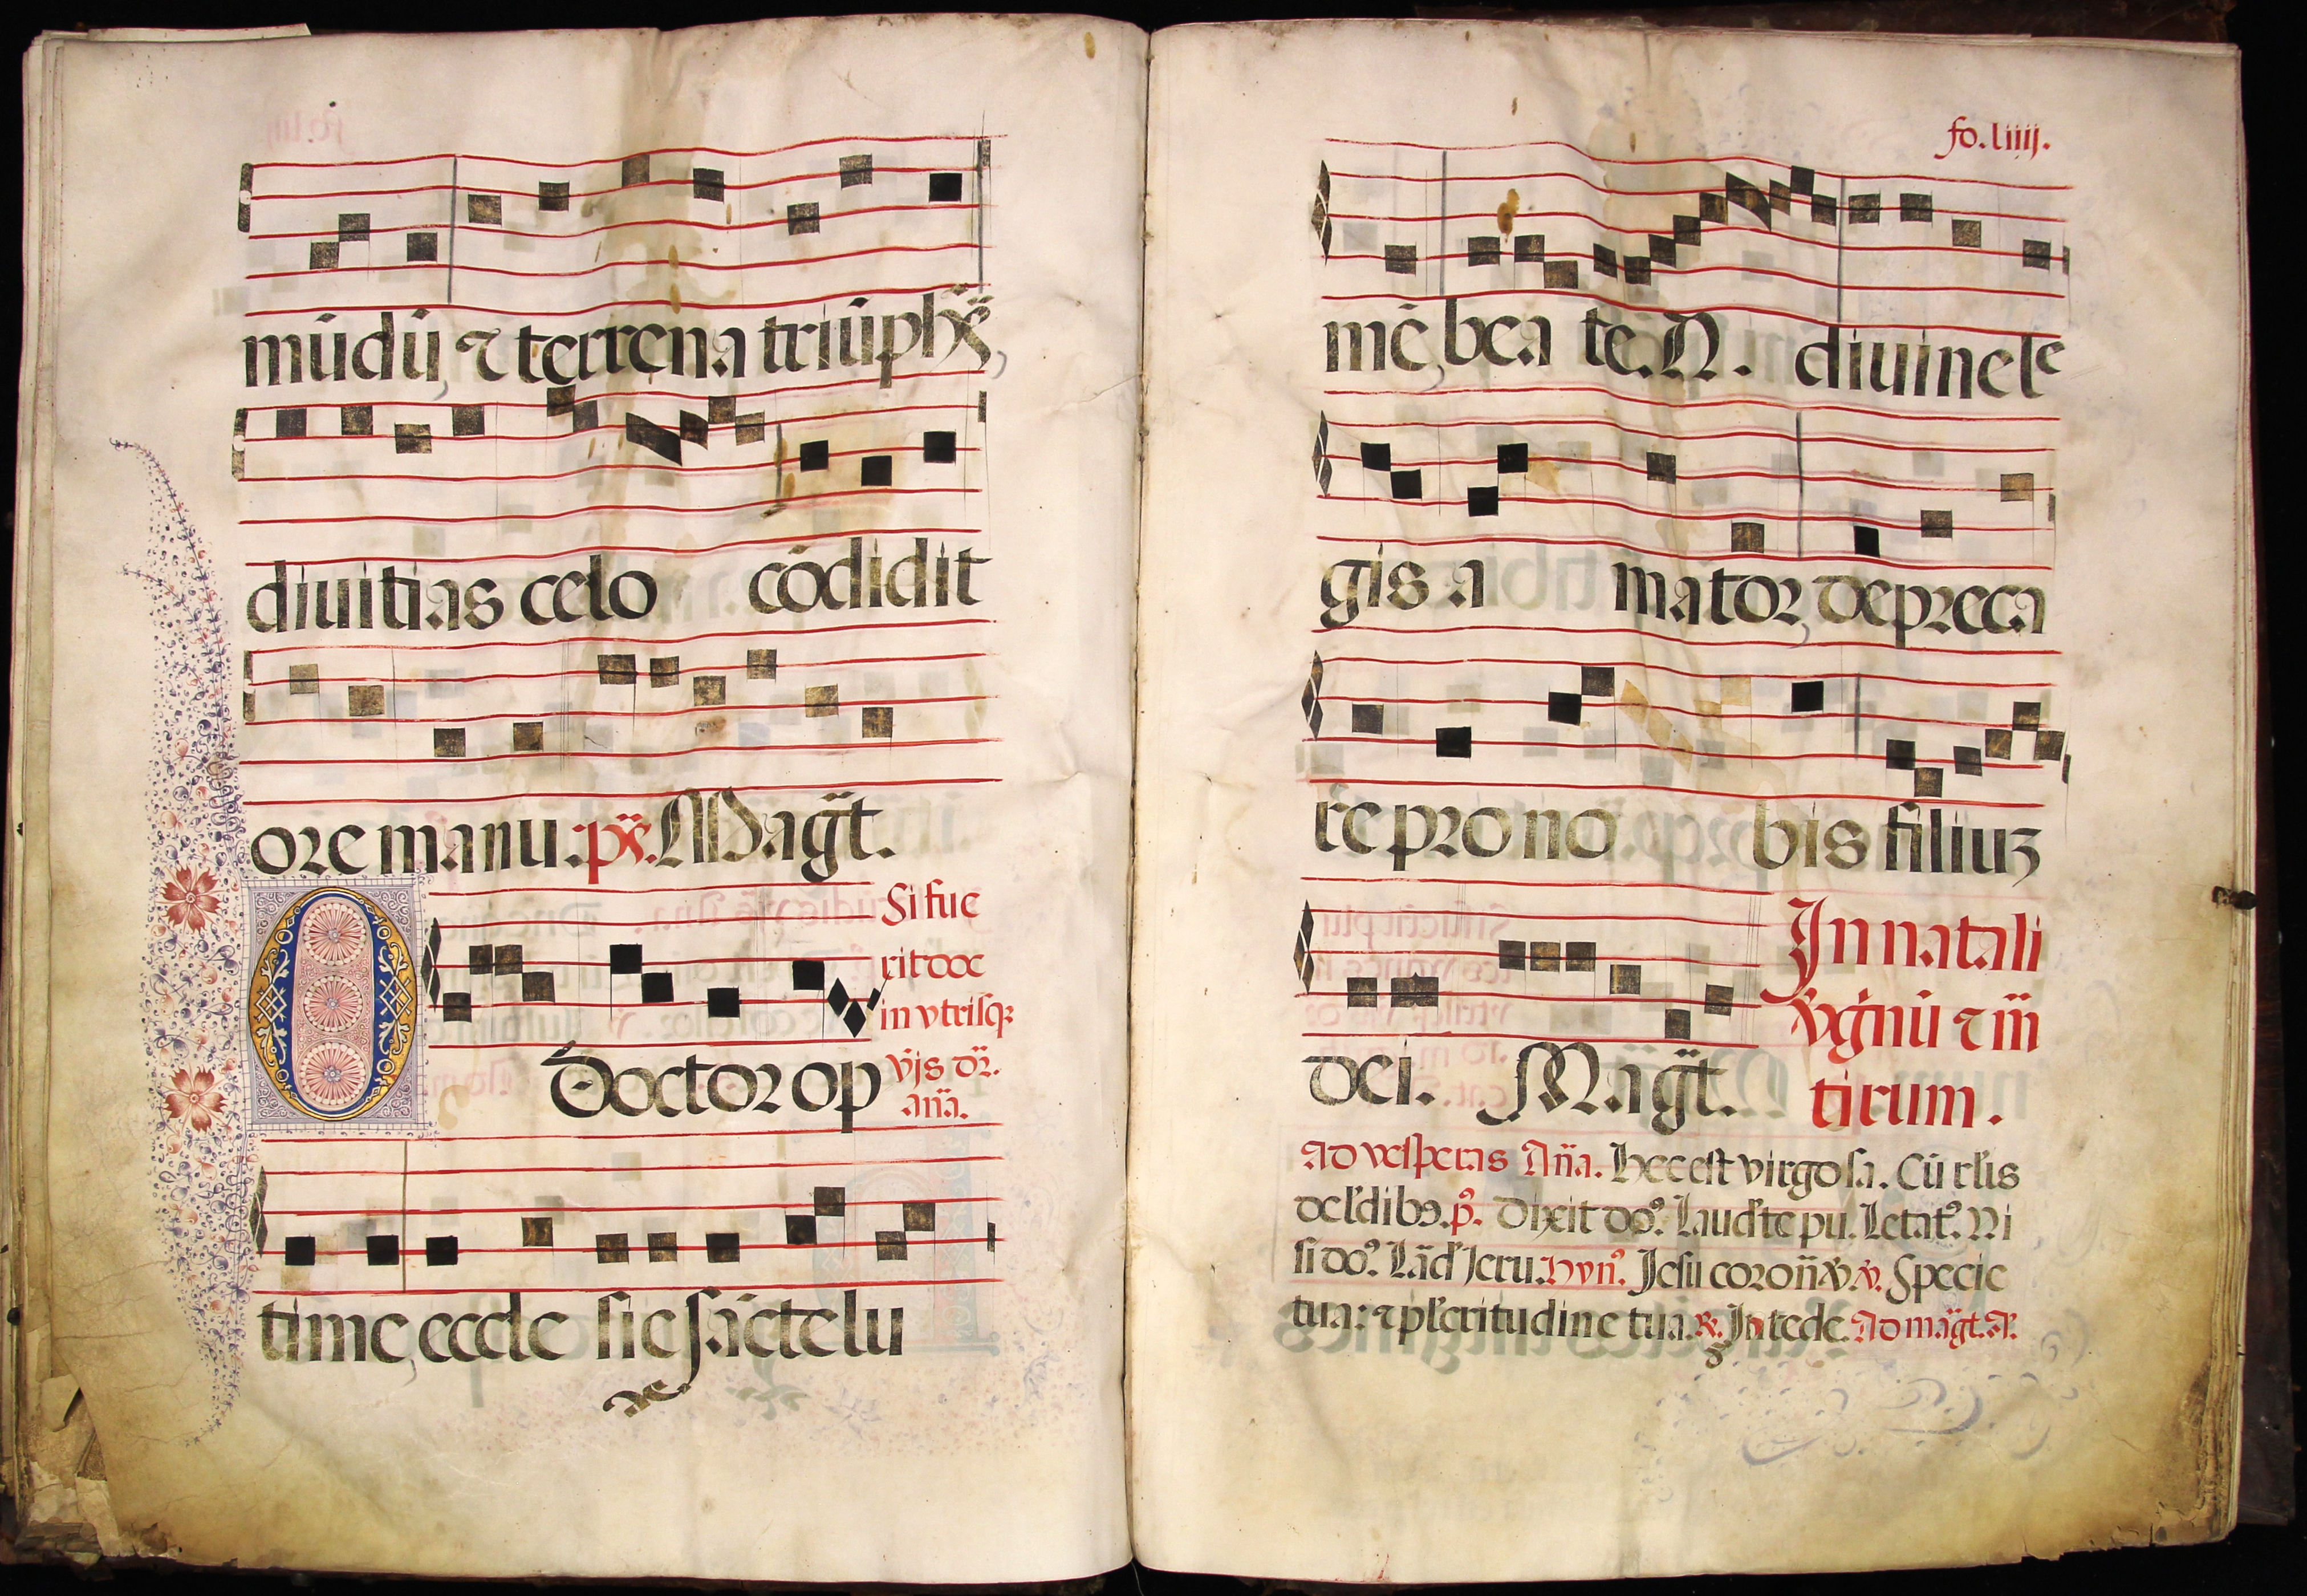 mūdū, ⁊ terrena triūphās,
diuitias celo cōdidit
ore manu. ps. Magt̄.
O Doctor op
Si fue
rit doc
in vtrisq̨
vṗis dr̄.
an̄a.
time, eccle sie sāctelu
fo. liiij.
mē, bea te. N. diuine le
gis a mator, depreca
re pro no bis filiuʒ
dei. Magt̄.
In natali
v̄gnū ⁊ m̄
tirum.
Ad vesperas An̄a. Hec est virgo sa. Cū rl̄is
de l'dibꝫ. p̄. Dixit do⁹. Laud'te pu. Letat⁹. Ni
si do⁹. Lād' Jeru. Hyn̄⁹. Jesu coron̄ v̄. ꝟ. Specie
tua: ⁊ pl'critudine tua. ℟. Intede. Ad māgt̄. A.